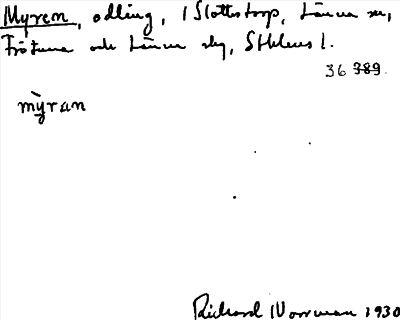 Myren, odling, i Slottstorp, Länna sn,
Frötuna och Länna slg, Sthlms l.
36 389.
mỳran
Richard Norrman 1930